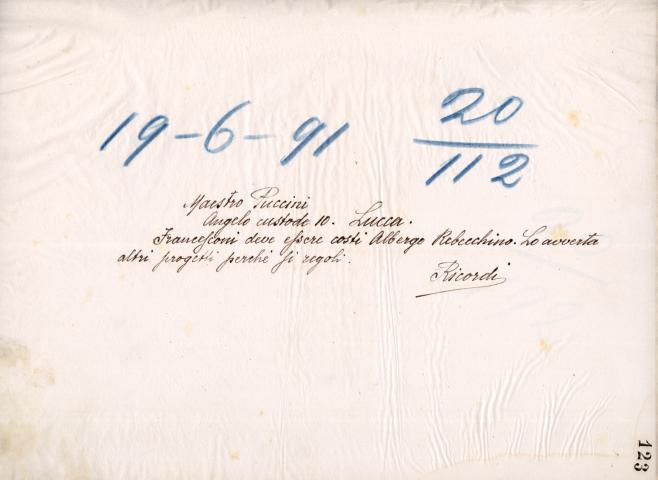 19-6-91
20
112
Maestro Puccini
Angelo custode 10. Lucca.
Francesconi deve essere costì Albergo Rebecchino. Lo avverta
altri progetti perché si regoli.
Ricordi
123